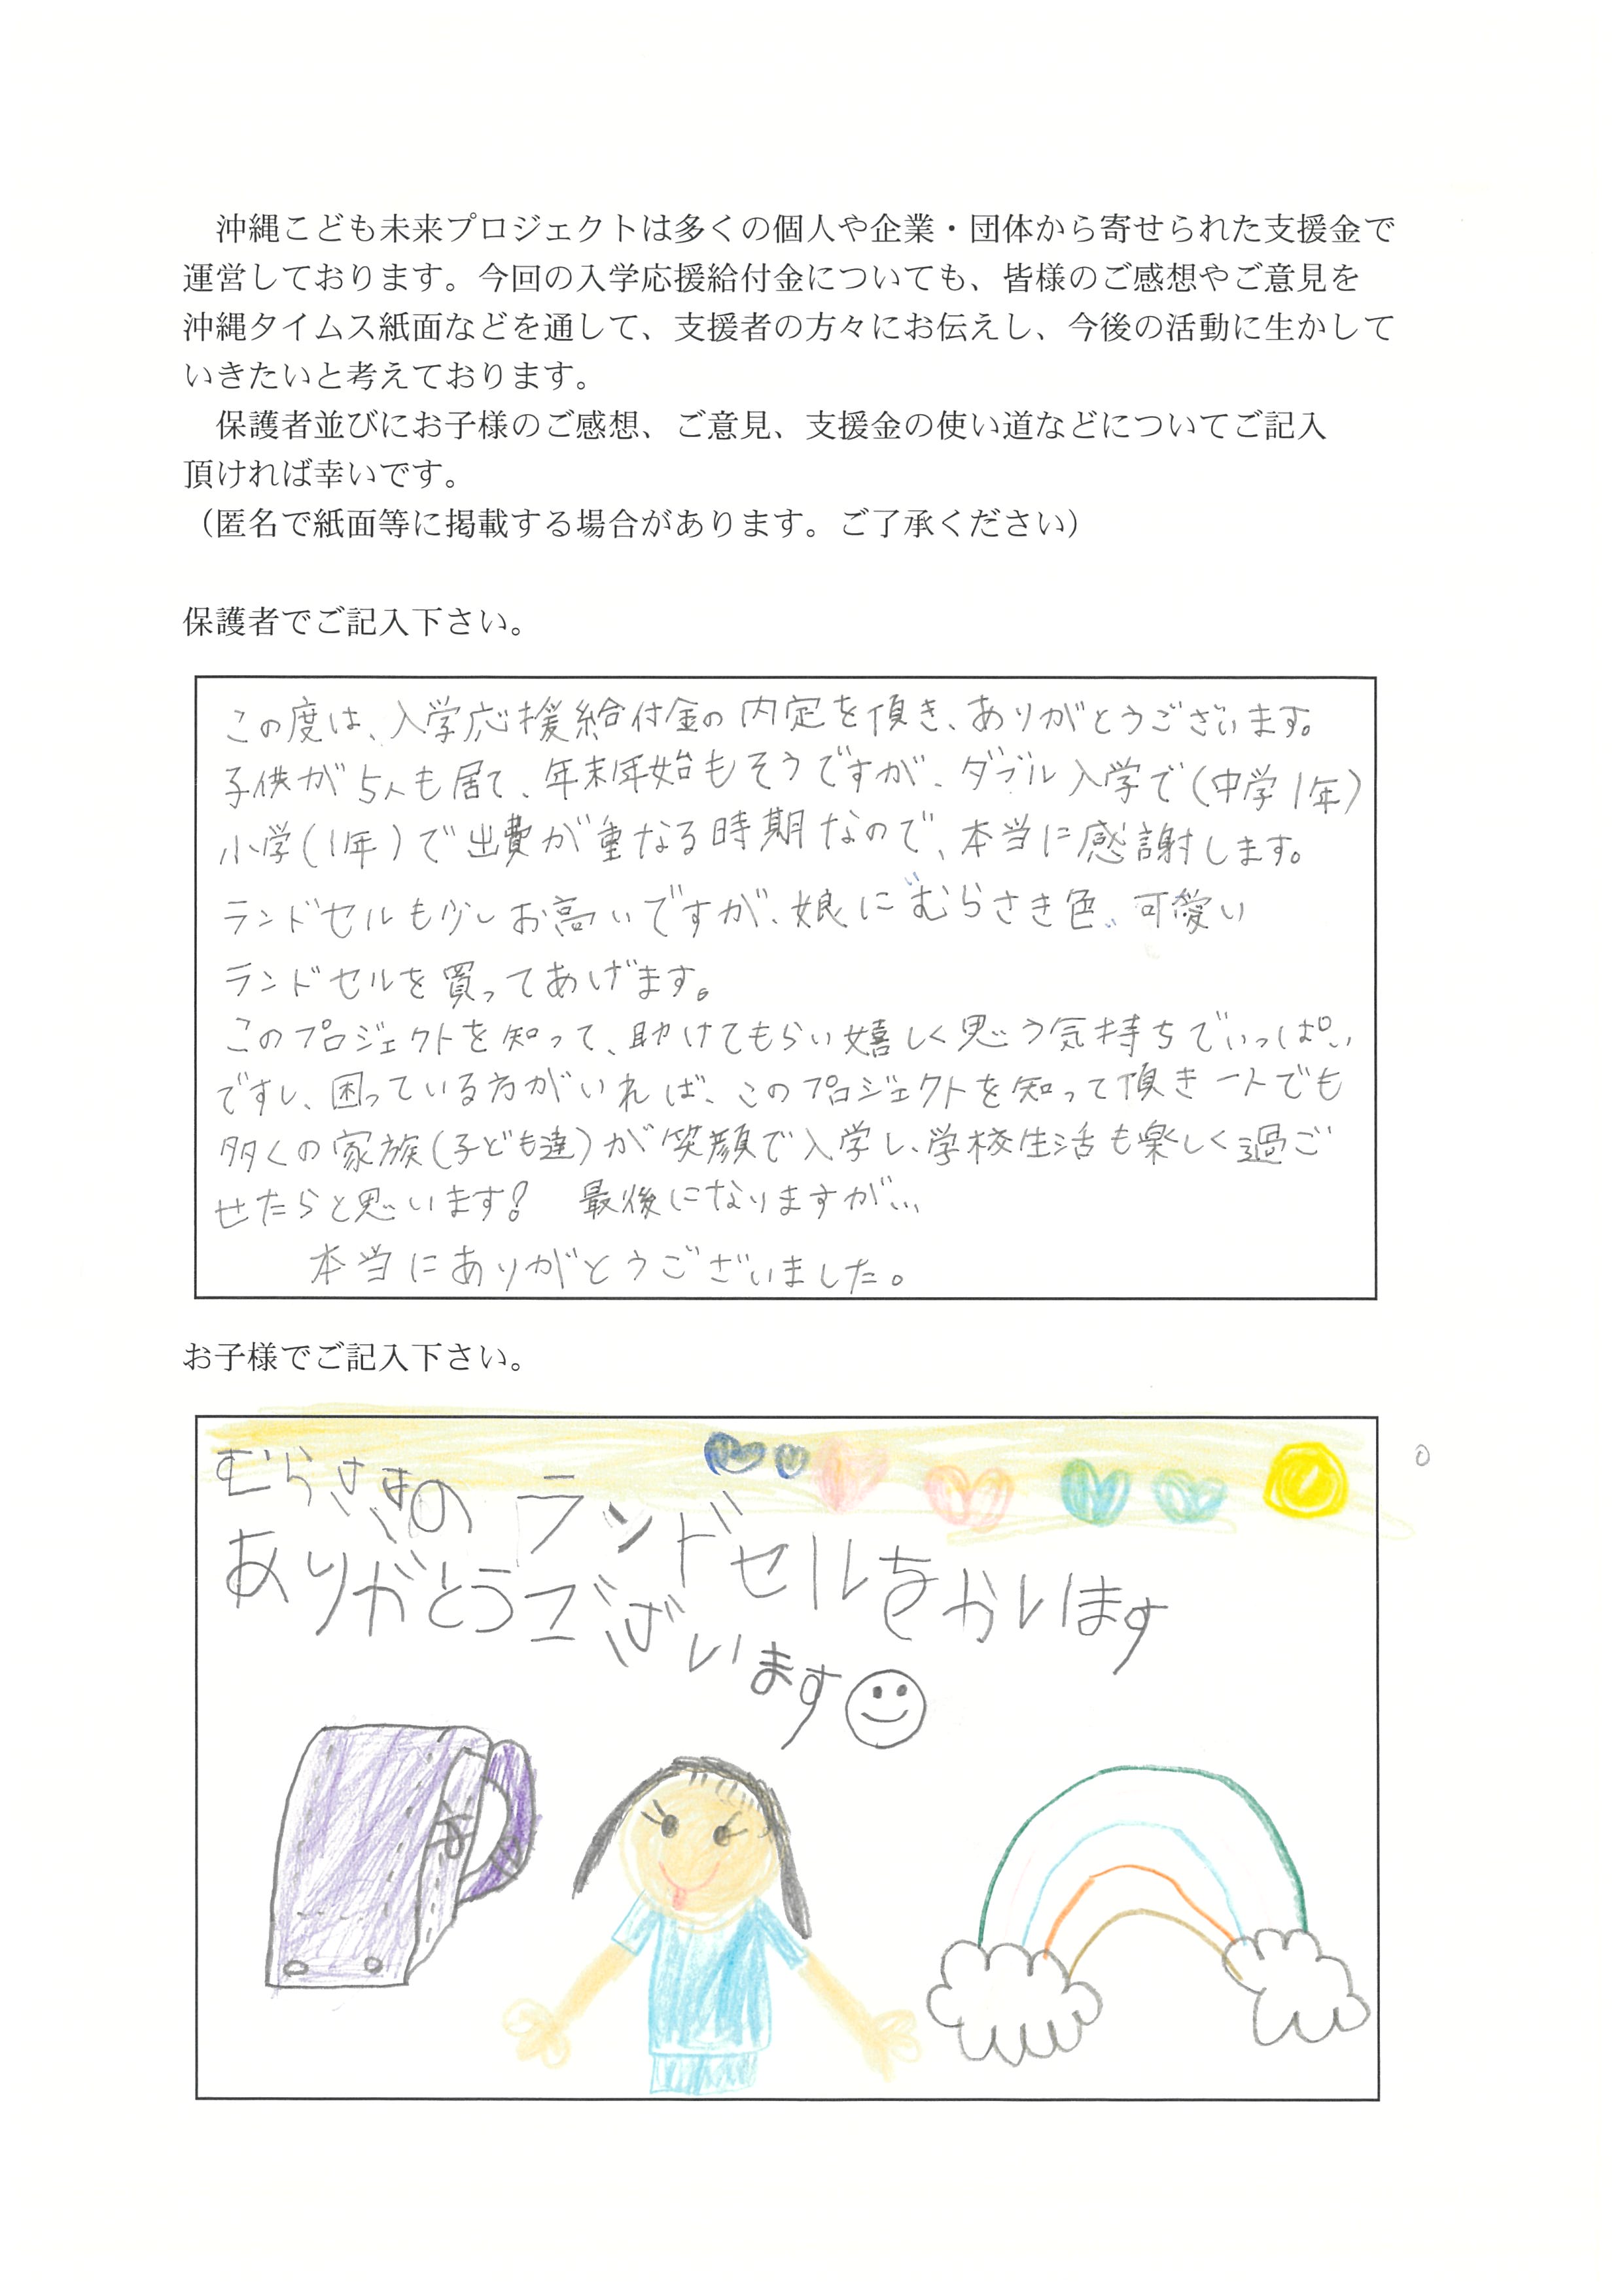 沖縄こども未来プロジェクトは多くの個人や企業・団体から寄せられた支援金で
運営しております。今回の入学応援給付金についても、皆様のご感想やご意見を
沖縄タイムス紙面などを通して、支援者の方々にお伝えし、今後の活動に生かして
いきたいと考えております。
保護者並びにお子様のご感想、ご意見、支援金の使い道などについてご記入
頂ければ幸いです。
（匿名で紙面等に掲載する場合があります。ご了承ください）
保護者でご記入下さい。
この度は、入学応援給付金の内定を頂き、ありがとうございます。
子供が5人も居て、年末年始もそうですが、ダブル入学で(中学1年)
小学(1年)で出費が重なる時期なので、本当に感謝します。
ランドセルも少しお高いですが、娘に〝むらさき色〟可愛い
ランドセルを買ってあげます。
このプロジェクトを知って、助けてもらい嬉しく思う気持ちでいっぱい
ですし、困っている方がいれば、このプロジェクトを知って頂き一人でも
多くの家族(子ども達)が笑顔で入学し、学校生活も楽しく過ご
せたらと思います! 最後になりますが…
本当にありがとうございました。
お子様でご記入下さい。
むらさきの ランドセルをかいます
ありがとうございます